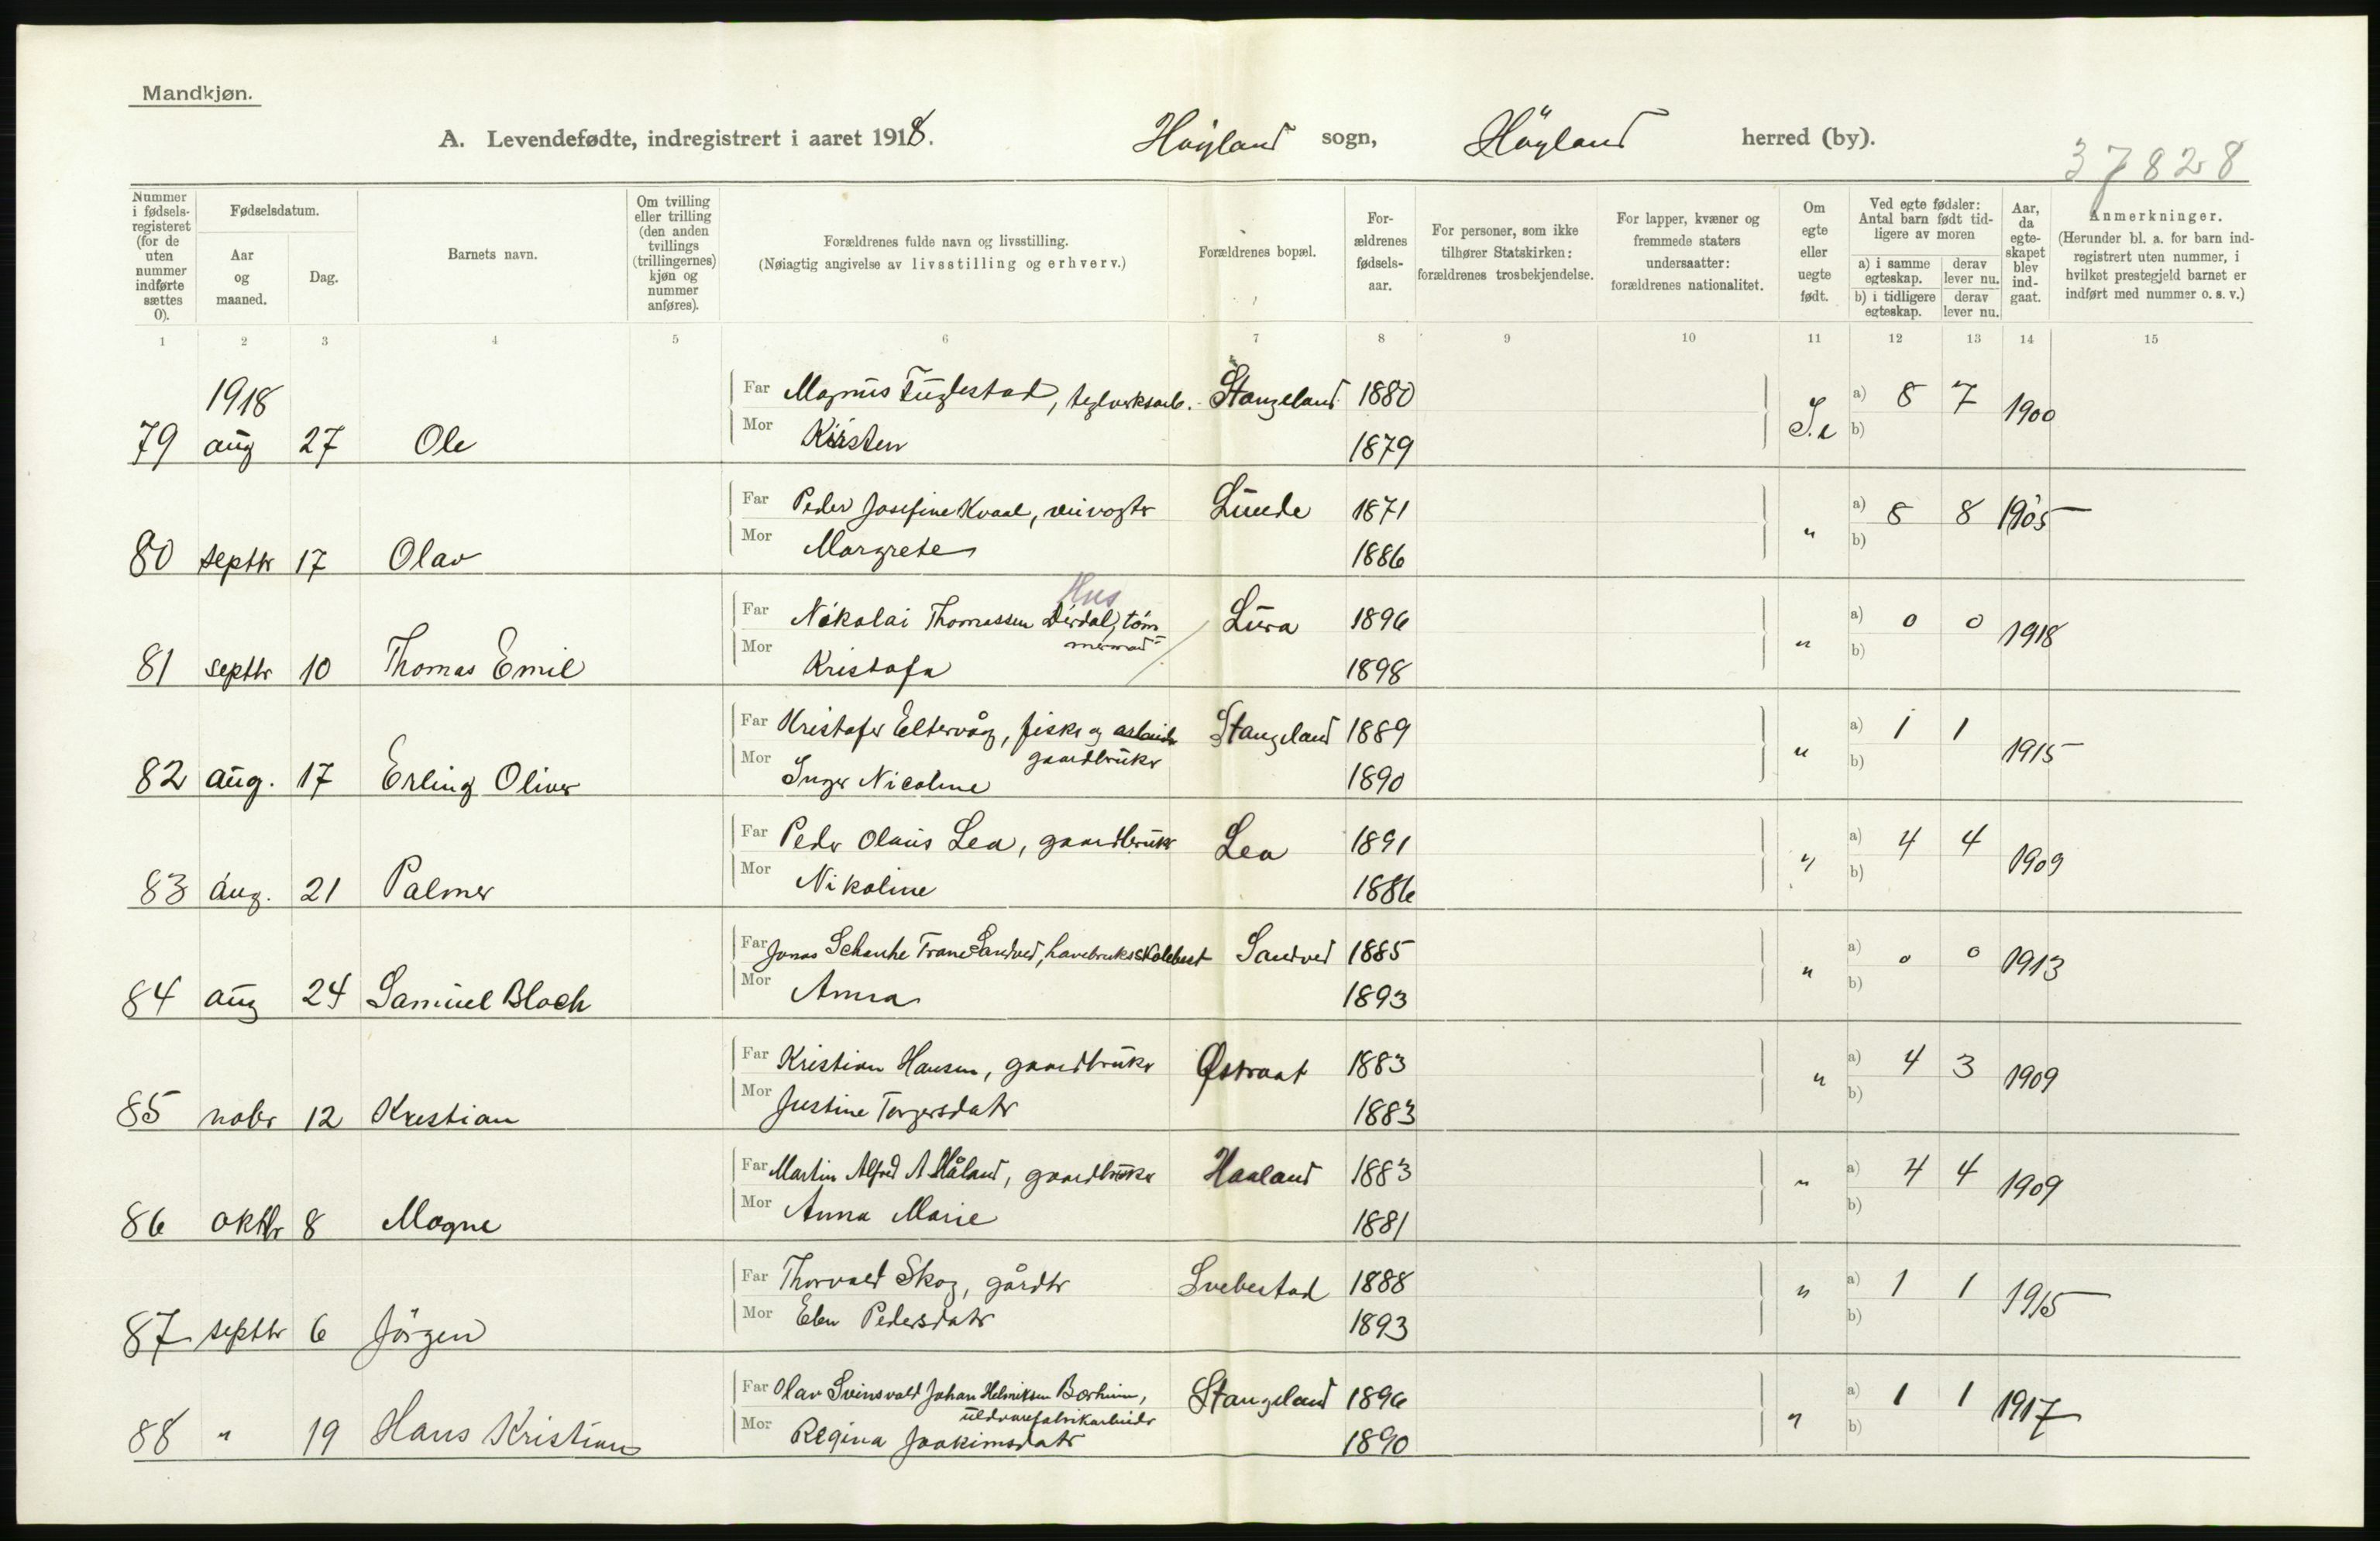 Mandkjøn.
A. Levendefødte, indregistrert i aaret 1918. Höyland sogn, Höyland herred (by).
37828
Nummer i fødsels-registeret (for de uten nummer indførte sættes 0).
Fødselsdatum.
Aar og maaned.
Dag.
Barnets navn.
Om tvilling eller trilling (den anden tvillings (trillingernes) kjøn og nummer anføres).
Forældrenes fulde navn og livsstilling.
(Nøiagtig angivelse av livsstilling og erhverv.)
Forældrenes bopæl.
For-ældrenes fødsels-aar.
For personer, som ikke tilhører Statskirken: forældrenes trosbekjendelse.
For lapper, kvæner og fremmede staters undersaatter: forældrenes nationalitet.
Om egte eller uegte født.
Ved egte fødsler: Antal barn født tid-ligere av moren
a) i samme egteskap.
derav lever nu.
b) i tidligere egteskap.
derav lever nu.
Aar, da egte-skapet blev ind-gaat.
Anmerkninger.
(Herunder bl. a. for barn ind-registrert uten nummer, i hvilket prestegjeld barnet er indført med nummer o. s. v.)
1 2 3 4 5 6 7 8 9 10 11 12 13 14 15
1918 Far Magnus Fuglestad, teglverksarb. Stangeland 1880 a) 8 7 1900
79 aug 27 Ole Mor Kirsten 1879 b)
Far Peder Josefine Kvaal, Lunde 1871 " a) 8 8 1905
80 septbr 17 Olav Mor Margrete 1886 b)
Hus
Far Nikolai Thomassen Dirdal, tøm Lura 1896 " a) 0 0 1918
mermand
81 septbr 10 Thomas Emil Mor Kristofa 1898 b)
Far Kristofer Eltervåg, fisker og arbeider Stangeland 1889 " a) 1 1 1915
gaardbruker
82 aug. 17 Erling Oliver Mor Inger Nicoline 1890 b)
Far Peder Olaus Lea, gaardbruker Lea 1891 " a) 4 4 1909
83 aug. 21 Palmer Mor Nikoline 1886 b)
Far Jonas Schanke Trane Sandved, havebruksskolebest Sandved 1885 " a) 0 0 1913
84 aug 24 Samuel Bloch Mor Anna 1893 b)
Far Kristian Hansen, gaardbruker Østraat 1883 " a) 4 3 1909
85 nobr 12 Krestian Mor Justine Torgersdatr 1883 b)
Far Martin Alfred A Håland, gaardbruker Haaland 1883 " a) 4 4 1909
86 oktbr 8 Magne Mor Anna Marie 1881 b)
Far Thorvald Skog, gårdbr Svebestad 1888 " a) 1 1 1915
87 septbr 6 Jörgen Mor Elen Pedersdatr 1893 b)
Far Olav Svinsvold Johan Helmiksen Borheim, Stangeland 1896 " a) 1 1 1917
uldvarefabrikarbeider
88 " 19 Hans Kristian Mor Regina Joakimsdatr 1890 b)